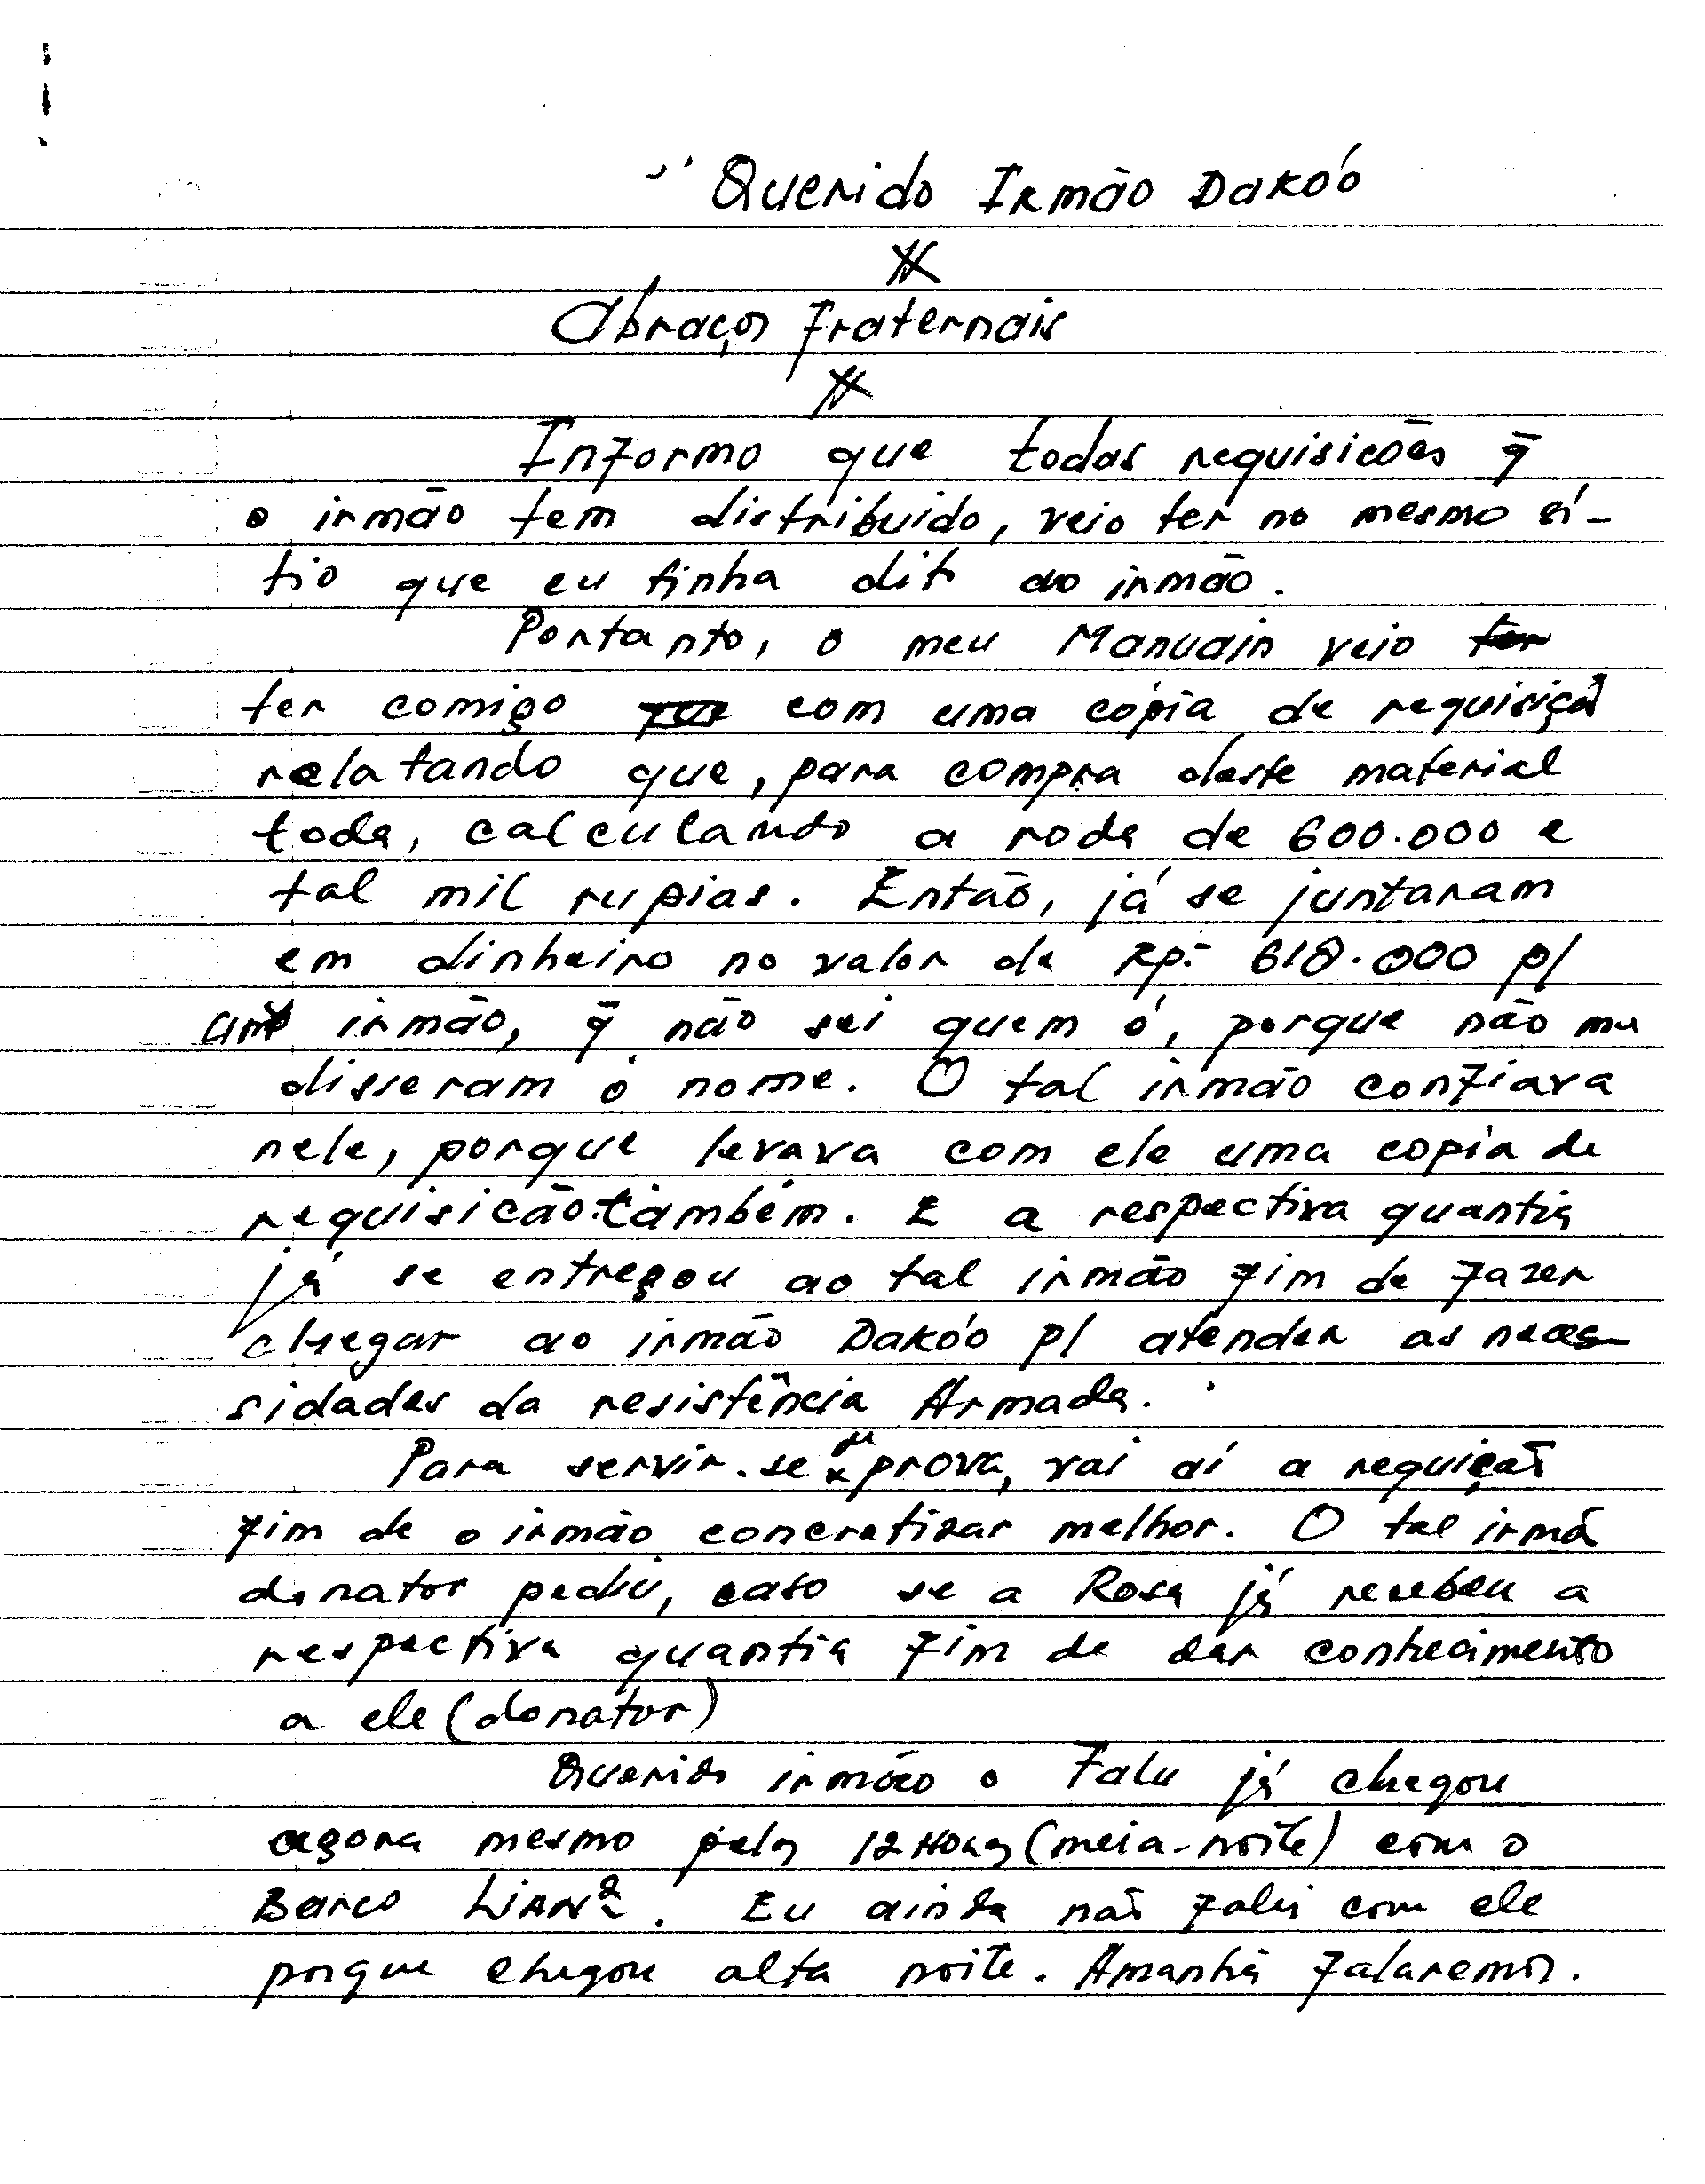 Querido Irmão Dakóo
Abraços Fraternais
Informo que todas requisicões q̄
o irmão tem distribuido, veio ter no mesmo sí-
tio que eu tinha dito ao irmão.
Portanto, o meu Manuain veio
ter comigo com uma cópia de requisiçã
relatando que, para compra deste material
toda, calculando a roda de 600.000 e
tal mil rupias. Então, já se juntaram
em dinheiro no valor de Rp:- 618.000 p/
um irmão, q̄ não sei quem é, porque não me
disseram o nome. O tal irmão confiava
nele, porque levava com ele uma copia de
requisicão também. E a respectiva quantia
já se entregou ao tal irmão fim de fazer
chegar ao irmão Dakóo p/ atender as neces-
sidades da resistência Armada.
Para servir-se de prova, vai aí a requiçaõ
fim de o irmão concretizar melhor. O tal irmã
donator pediu, caso se a Rosa já recebeu a
respectiva quantia fim de dar conhecimento
a ele (donator)
Querido irmão o Falu já chegou
agora mesmo pelas 12 Horas (meia-noite) com o
Barco . Eu ainda não falei com ele
porque chegou alta noite. Amanhã falaremos.